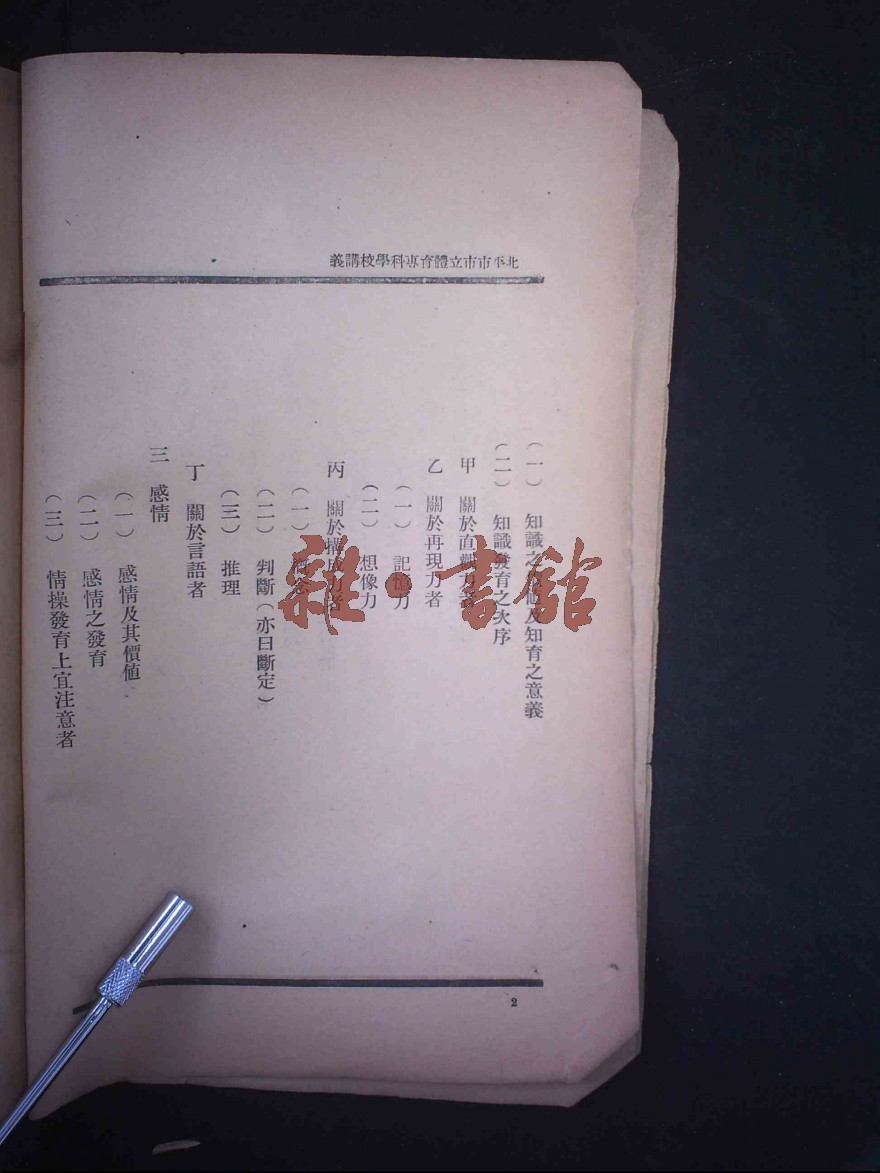 北平市市立體育專科學校講義
（一）　知識之價値及知育之意義
（二）　知識發育之次序
甲　關於直觀力者
乙　關於再現力者
（一）　記憶力
（二）　想像力
丙　關於構成力者
（一）　概念
（二）　判斷（亦曰斷定）
（三）　推理
丁　關於言語者
三　感情
（一）　感情及其價値
（二）　感情之發育
（三）　情操發育上宜注意者
2
雜·書館